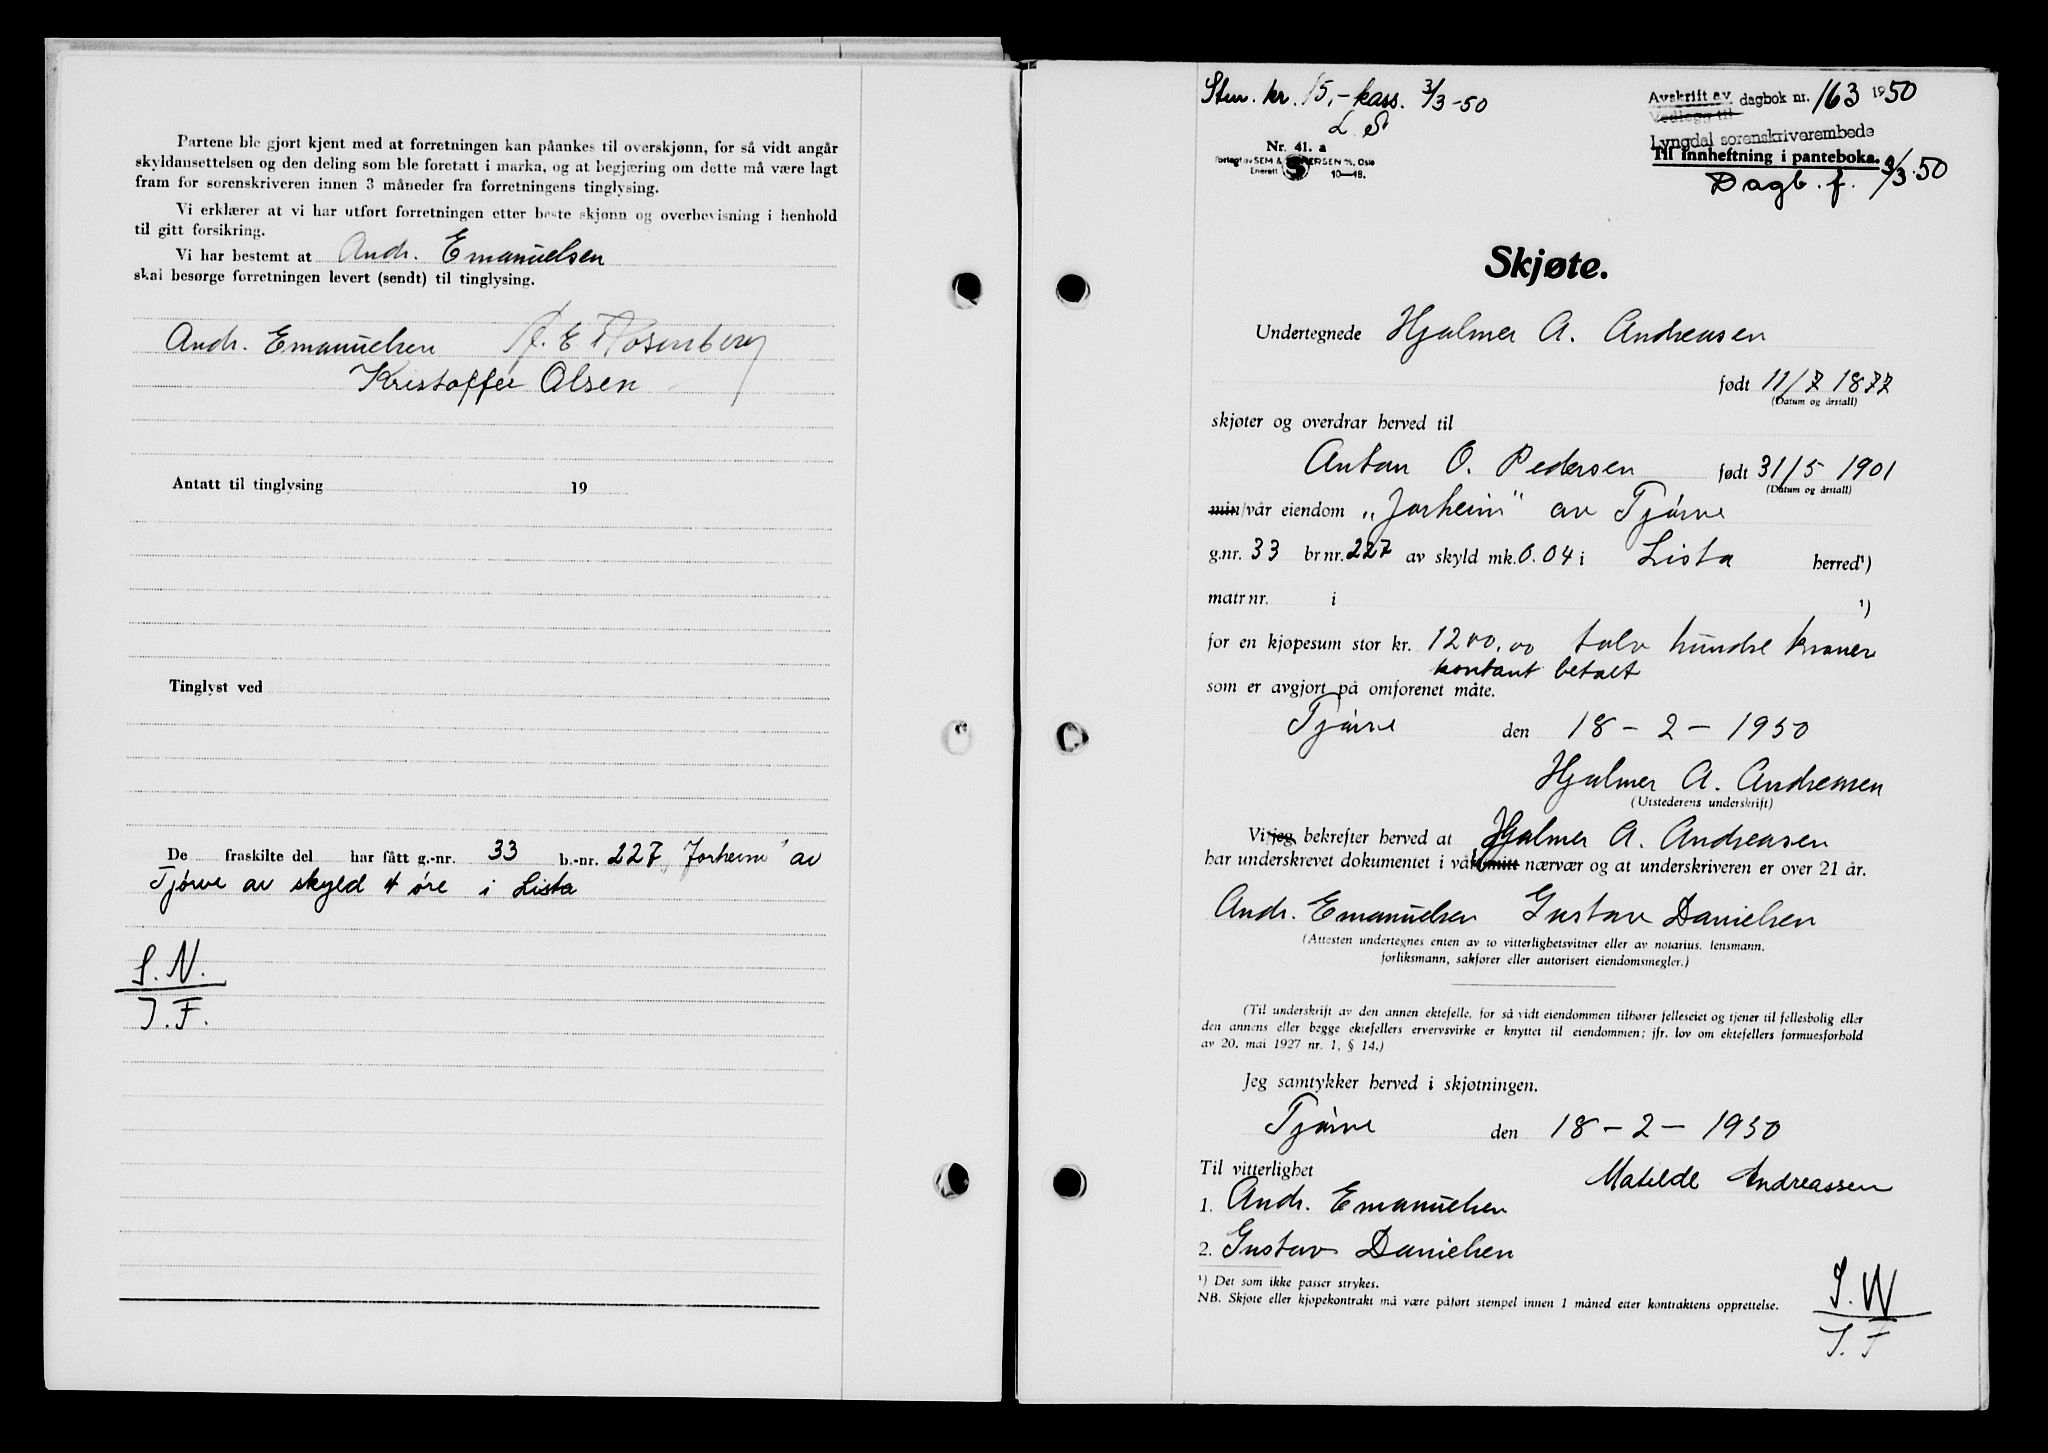 Partene ble gjort kjent med at forretningen kan påankes til overskjønn, for så vidt angår
skyldansettelsen og den deling som ble foretatt i marka, og at begjæring om dette må være lagt
fram for sorenskriveren innen 3 måneder fra forretningens tinglysing.
Vi erklærer at vi har utført forretningen etter beste skjønn og overbevisning i henhold
til gitt forsikring.
Vi har bestemt at Andr. Emanuelsen
skal besørge forretningen levert (sendt) til tinglysing.
Andr. Emanuelsen E. Rosenberg
Kristoffer Olsen
Antatt til tinglysing 19
Tinglyst ved
De fraskilte del har fått g.-nr. 33 b.-nr. 227 „Jorheim" av
Tjørve av skyld 4 øre i Lista
S. N.
J. F.
Stm. kr. 15,- kass. 3/3-50
L S
Nr. 41. a
Forlagt av SEM & STENERSEN A/s, Oslo
Enerett S 10—48.
Avskrift av dagbok nr. 163 1950
Vedlegg til
Lyngdal sorenskriverembede
Til innheftning i panteboka.
Dagb. f. 3/3.50
Skjøte.
Undertegnede Hjalmer A. Andreasen
født 11/7 1877
(Datum og årstall)
skjøter og overdrar herved til
Anton O. Pedersen født 31/5 1901
(Datum og årstall)
min/vår eiendom „Jorheim" av Tjørve
g.nr. 33 br nr. 227 av skyld mk. 0.04 i Lista herred¹)
matr nr. i ¹)
for en kjøpesum stor kr. 1200,00 tolv hundre kroner
kontant betalt
som er avgjort på omforenet måte.
Tjørve den 18 - 2 - 1950
Hjalmer A. Andreasen
(Utstederens underskrift)
Vi/jeg bekrefter herved at Hjalmer A. Andreasen
har underskrevet dokumentet i vårt/mitt nærvær og at underskriveren er over 21 år.
Andr. Emanuelsen Gustav Danielsen
(Attesten undertegnes enten av to vitterlighetsvitner eller av notarius, lensmann,
forliksmann, sakfører eller autorisert eiendomsmegler.)
(Til underskrift av den annen ektefelle, for så vidt eiendommen tilhører felleseiet og tjener til fellesbolig eller
den annens eller begge ektefellers ervervsvirke er knyttet til eiendommen; jfr. lov om ektefellers formuesforhold
av 20. mai 1927 nr. 1, § 14.)
Jeg samtykker herved i skjøtningen.
Tjørve den 18 - 2 - 1950
Til vitterlighet
Matilde Andreassen
1. Andr. Emanuelsen
2. Gustav Danielsen
¹) Det som ikke passer strykes.
NB. Skjøte eller kjøpekontrakt må være påført stempel innen 1 måned etter kontraktens opprettelse.
S. W
J. F